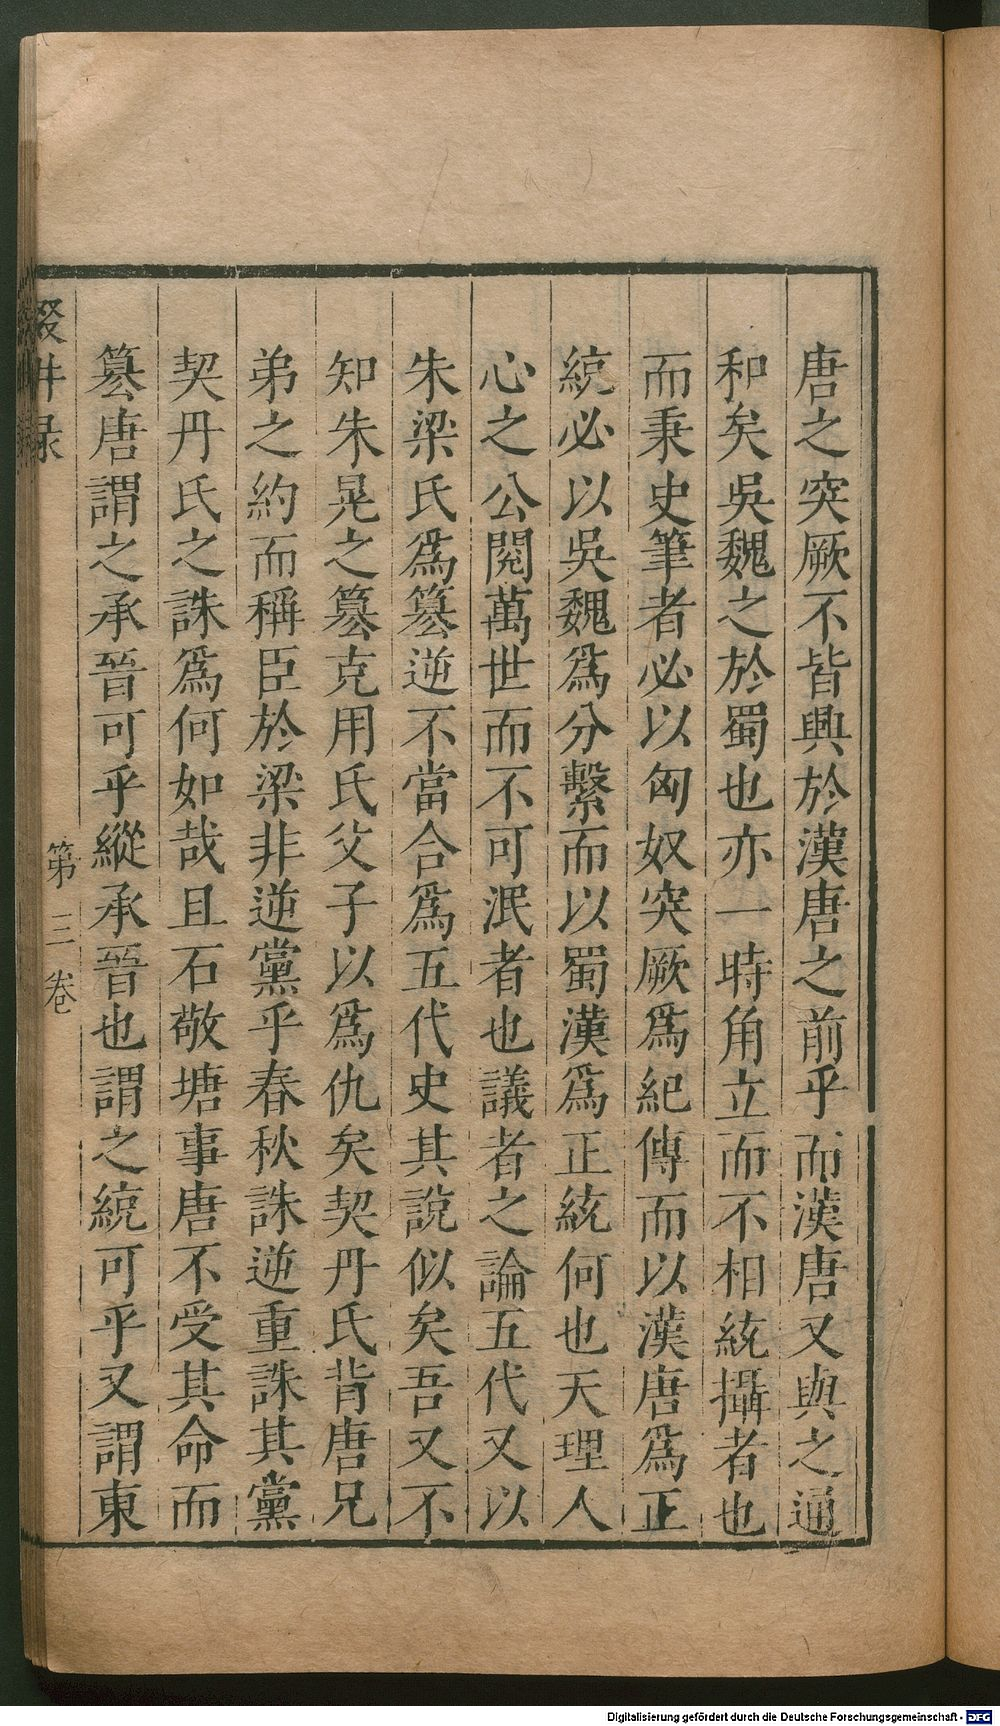 唐之突厥不皆興於漢唐之前乎而漢唐又與之通
和矣吳魏之於蜀也亦一時角立而不相統攝者也
而秉史筆者必以匈奴突厥爲紀傳而以漢唐爲正
統必以吳魏爲分繫而以蜀漢爲正統何也天理人
心之公閱萬世而不可泯者也議者之論五代又以
朱梁氏爲簒逆不當合爲五代史其說似矣吾又不
知朱晃之簒克用氏父子以爲仇矣契丹氏背唐兄
弟之約而稱臣於梁非逆黨乎春秋誅逆重誅其黨
契丹氏之誅爲何如哉且石敬塘事唐不受其命而
簒唐謂之承晉可乎縱承晉也謂之統可乎又謂東
第三卷
Digitalisierung gefördert durch die Deutsche Forschungsgemeinschaft - DFG